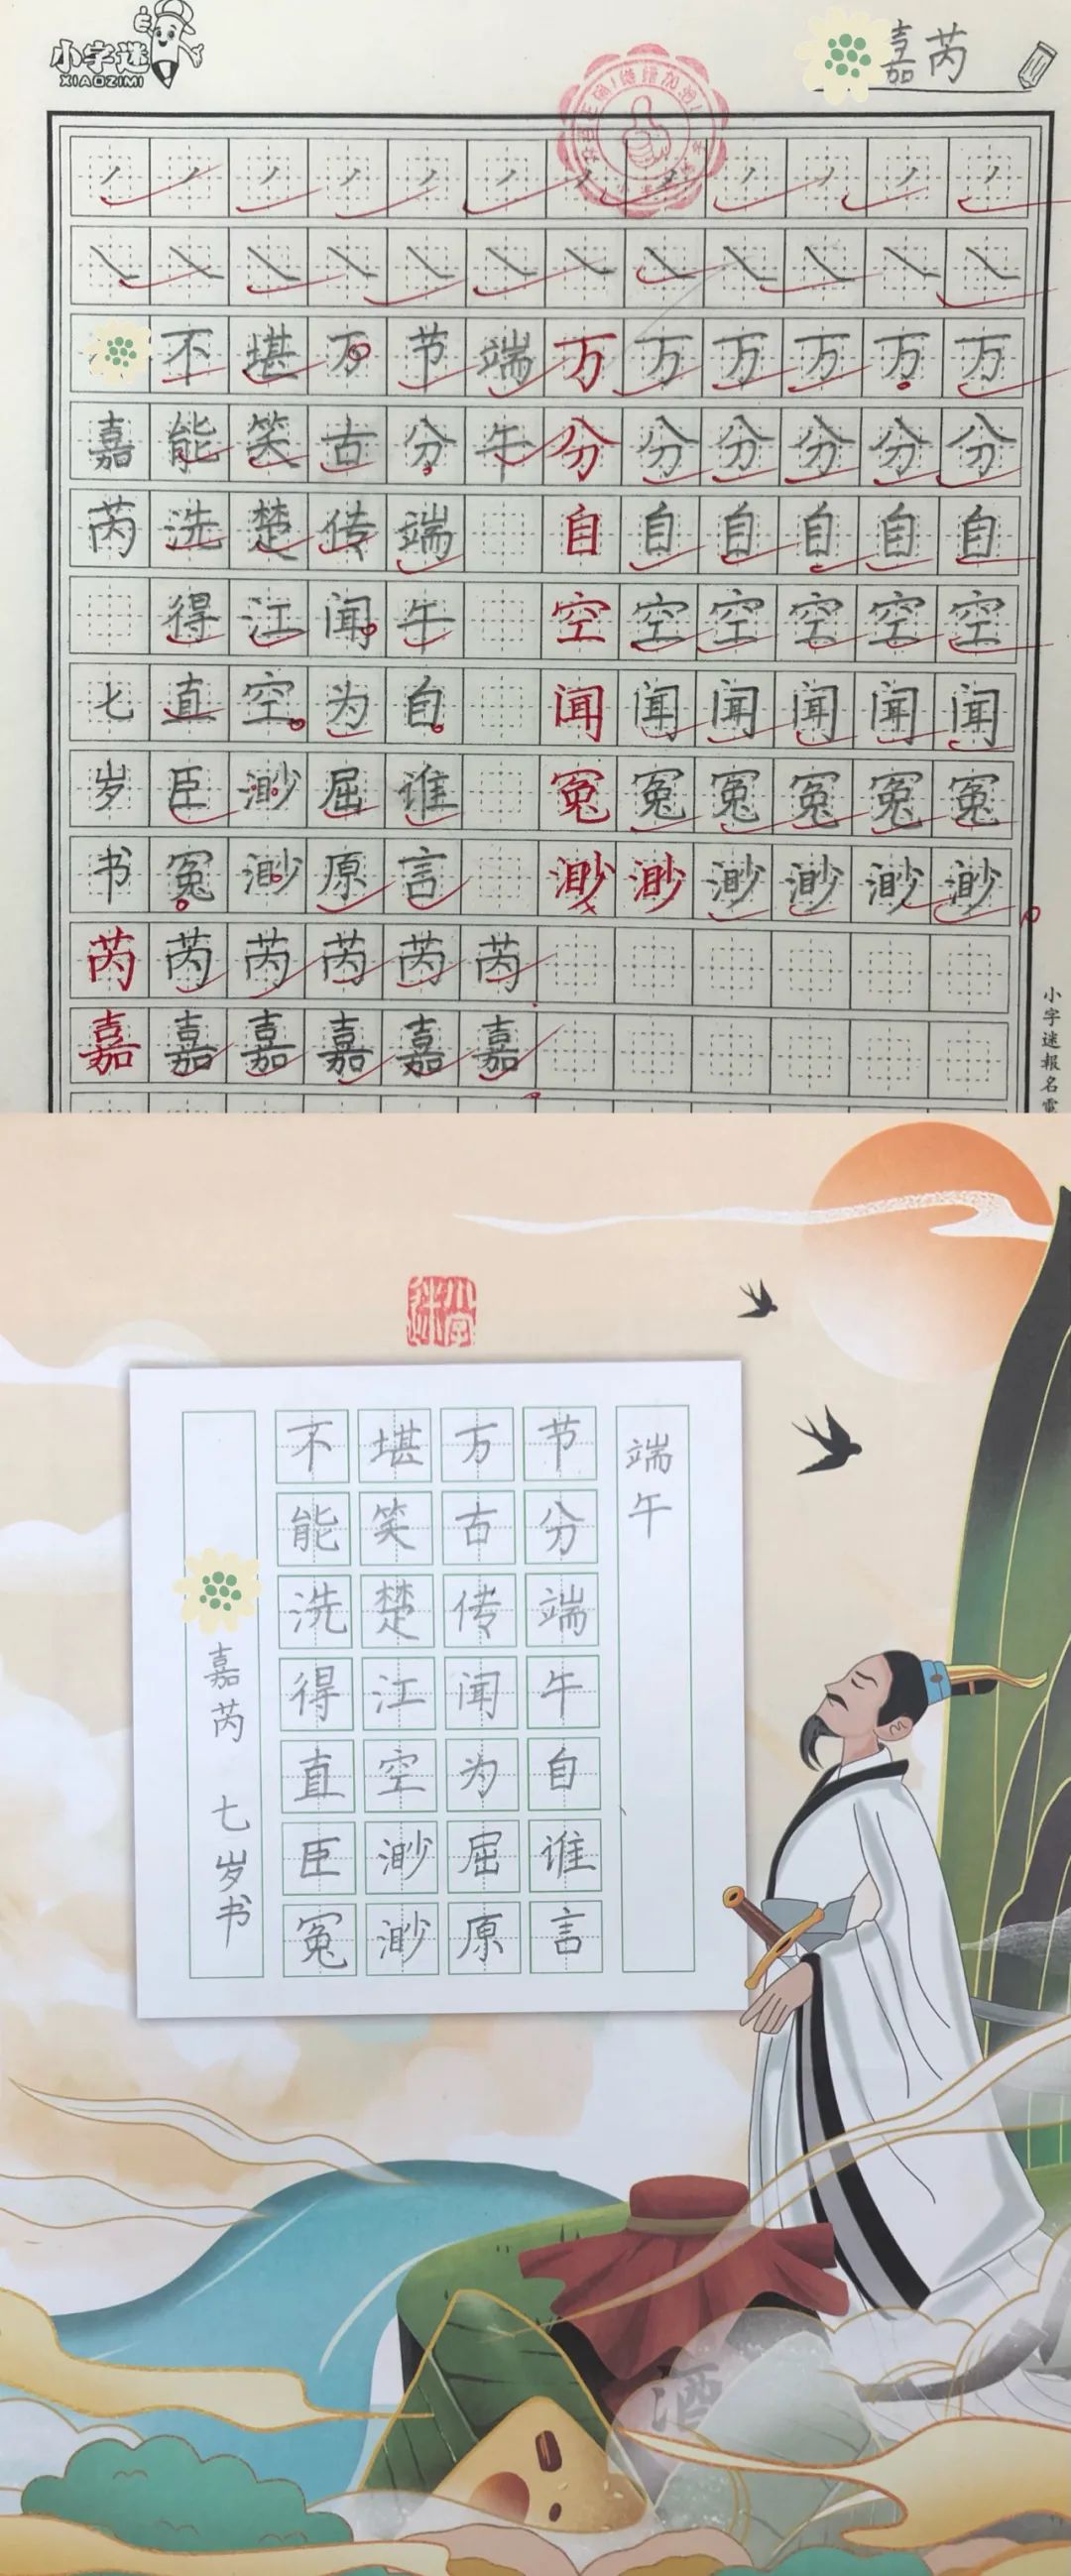 小字迷
XIAOZIMI
嘉芮
不堪万节端万万万万万万
嘉能笑古分午分分分分分分
芮洗楚传端自自自自自自
得江闻午空空空空空空
七直空为自闻闻闻闻闻闻
岁臣渺屈谁冤冤冤冤冤冤
书冤渺原言渺渺渺渺渺渺
芮芮芮芮芮芮
嘉嘉嘉嘉嘉嘉
小字迷報名電
小字迷
端午
节分端午自谁言
万古传闻为屈原
堪笑楚江空渺渺
不能洗得直臣冤
嘉芮 七岁书
酒